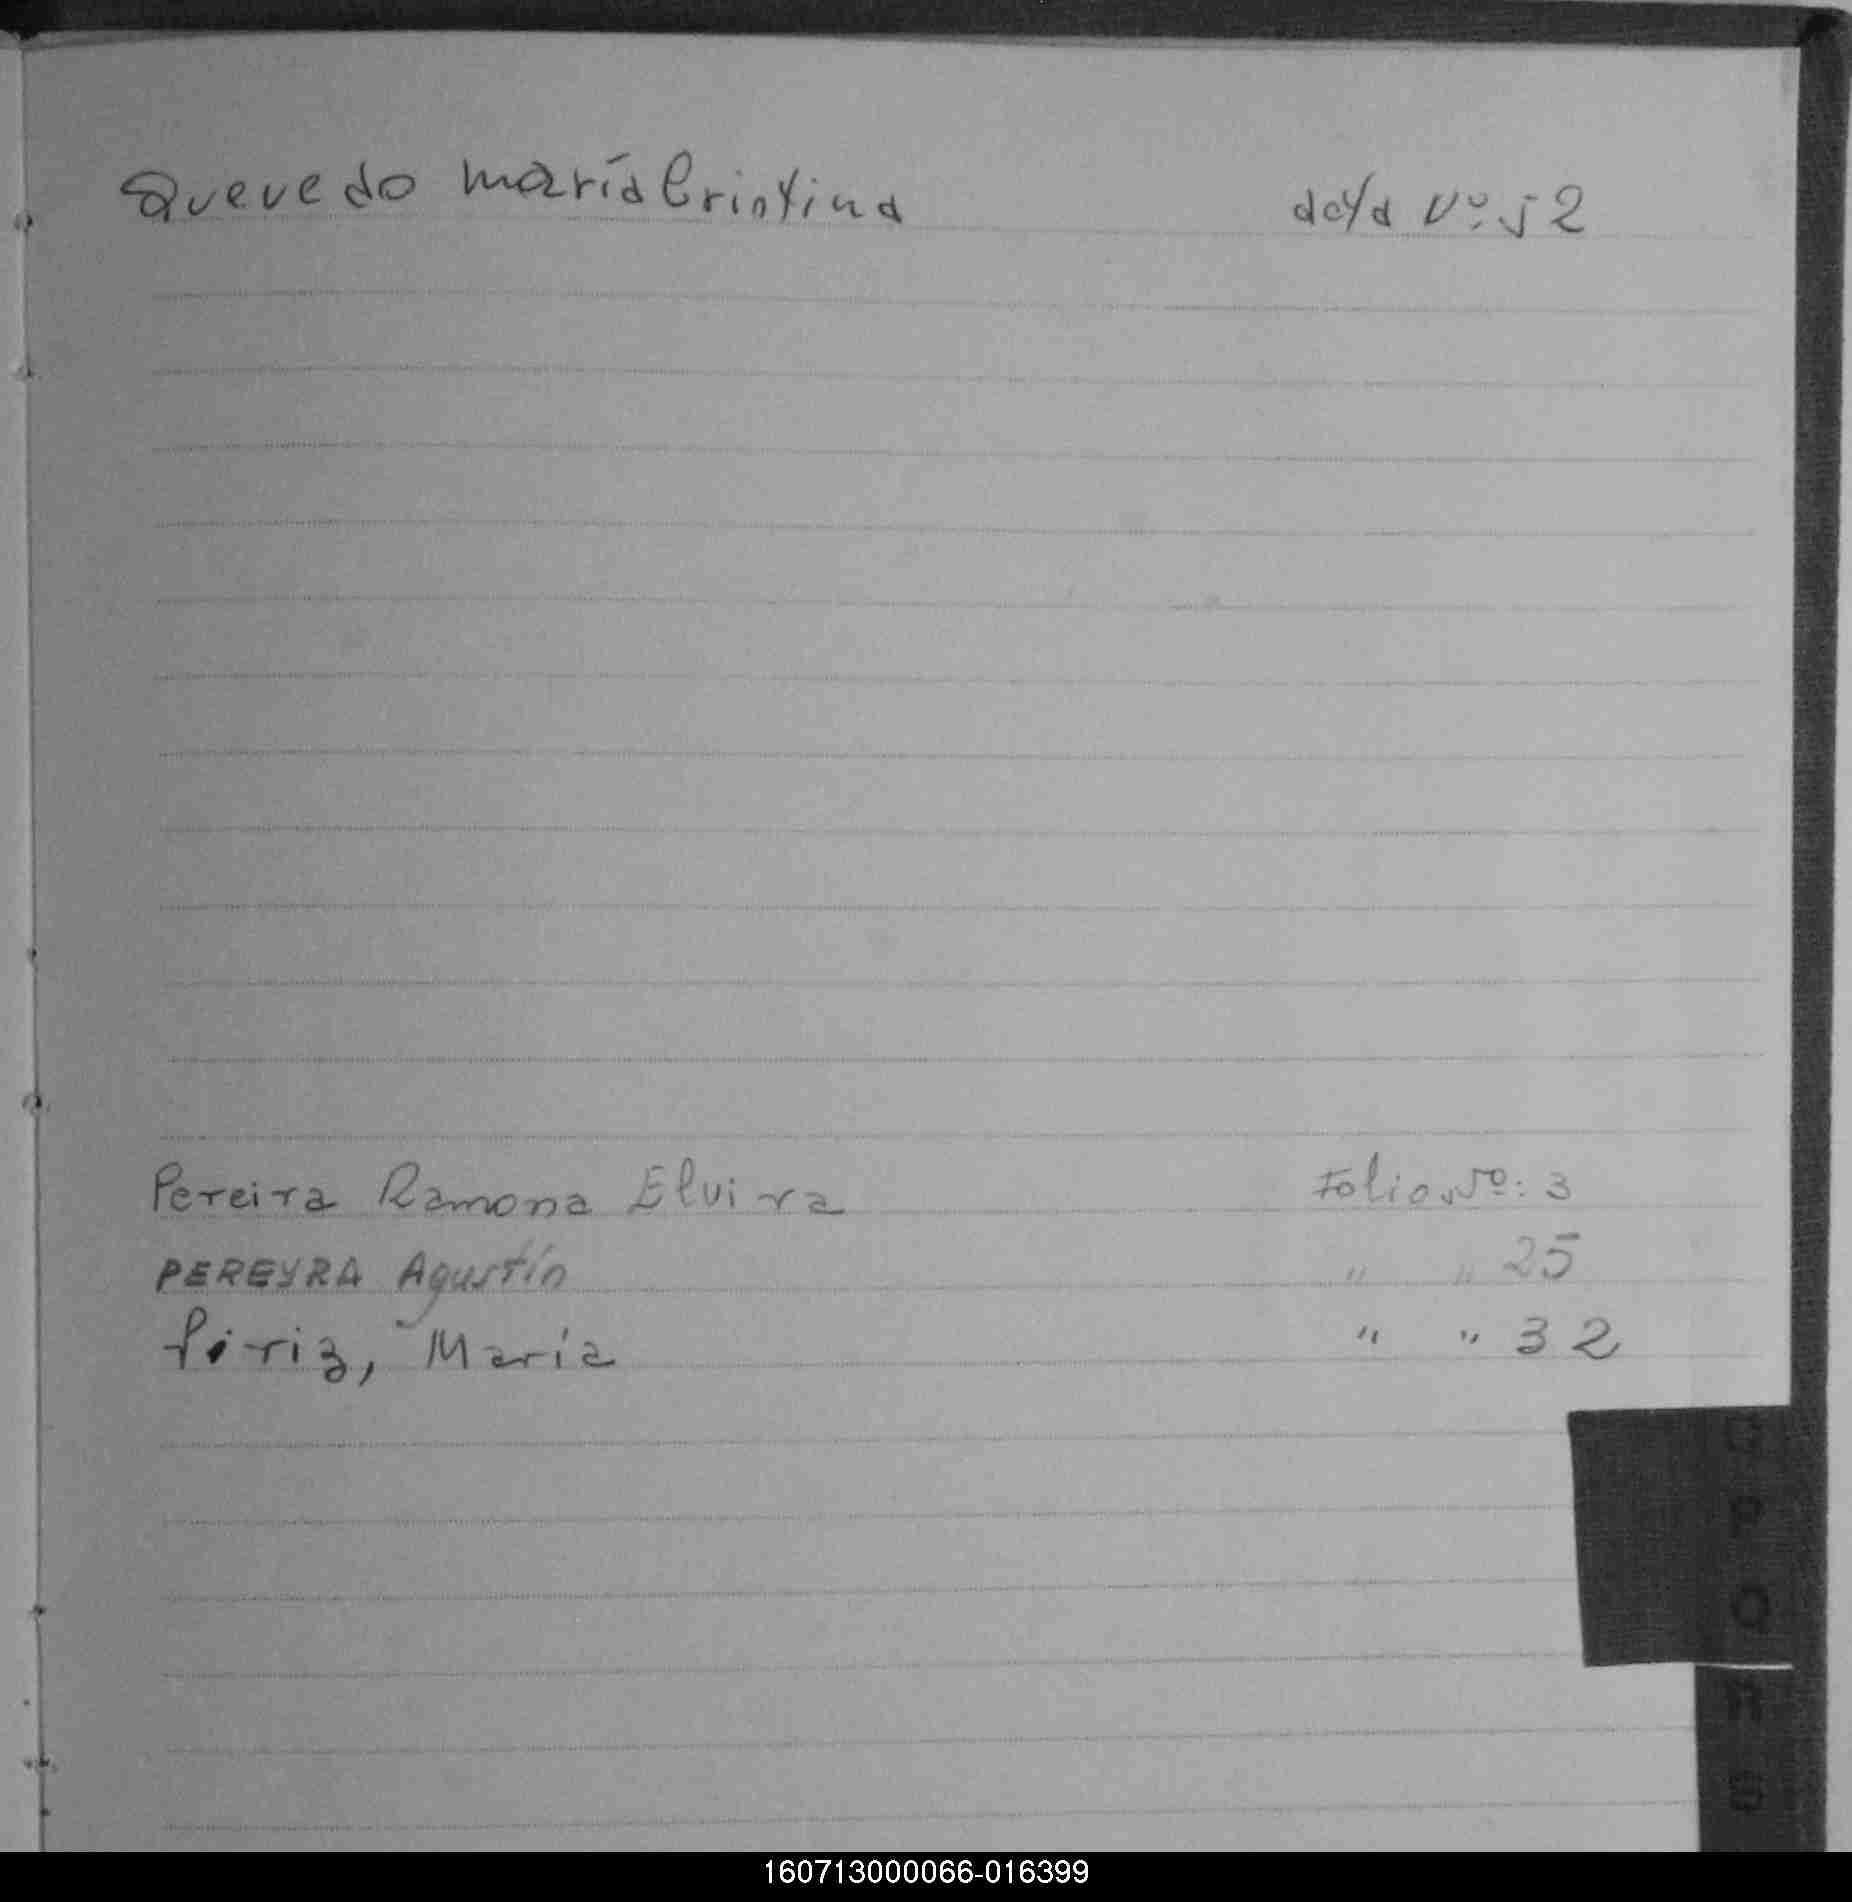 Quevedo María Cristina acta Nº 52
Pereira Ramona Elvira Folio Nº: 3
PEREYRA Agustín " " 25
Piriz, María " " 32
P
Q
R
S
160713000066-016399